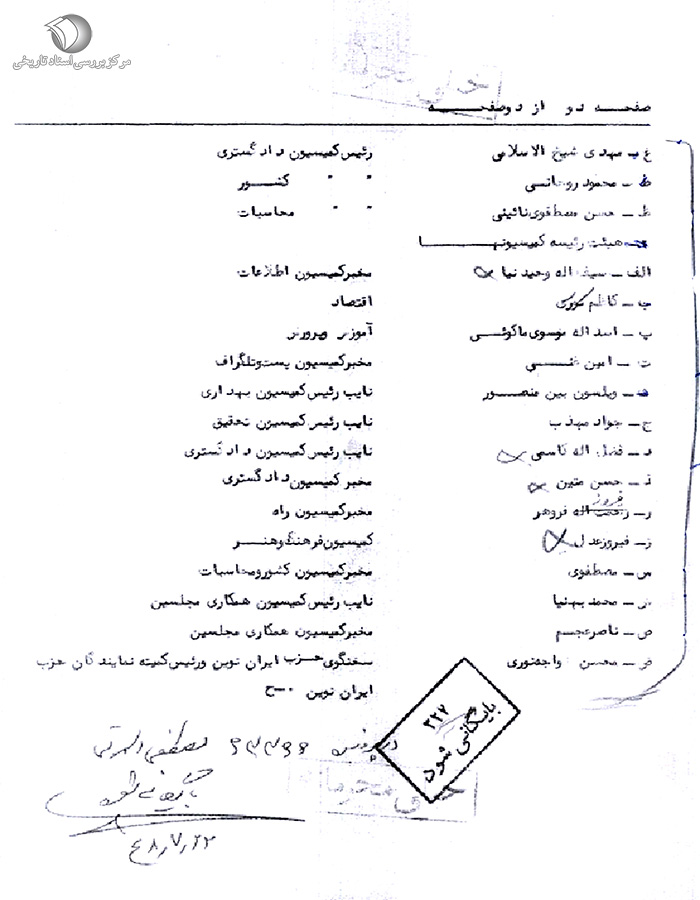 مرکز بررسی اسناد تاریخی
صفحه دو از دوصفحه
ع ـ مهدی شیخ الاسلامی رئیس کمیسیون دادگستری
ط ـ محمود روحانی " " کشور
ظ ـ حسن مصطفوی نائینی " " محاسبات
هیئت رئیسه کمیسیونها
الف ـ سیف اله وحید نیا مخبر کمیسیون اطلاعات
ب ـ کاظم کورس اقتصاد
پ ـ اسد اله موسوی ماکوئی آموزش وپرورش
ت ـ امین مخبر کمیسیون پست وتلگراف
ث ـ ویلسون بین منصور نایب رئیس کمیسیون بهداری
ج ـ جواد مهذب نایب رئیس کمیسیون تحقیق
د ـ فضل اله کاسمی نایب رئیس کمیسیون دادگستری
ذ ـ حسن متین مخبر کمیسیون دادگستری
ر ـ اله فروهر مخبر کمیسیون راه
ز ـ فیروز عدل کمیسیون فرهنگ وهنر
س ـ مصطفوی مخبر کمیسیون کشور ومحاسبات
ش ـ محمد بهنیا نایب رئیس کمیسیون همکاری مجلسین
ص ـ ناصر عجم مخبر کمیسیون همکاری مجلسین
ض ـ محسن خواجه نوری سخنگوی حزب ایران نوین ورئیس کمیته نمایندگان حزب
ایران نوین ۰-ح
بایگانی شود
۳۲۲
خیلی محرمانه
۴۸٫۷٫۲۲